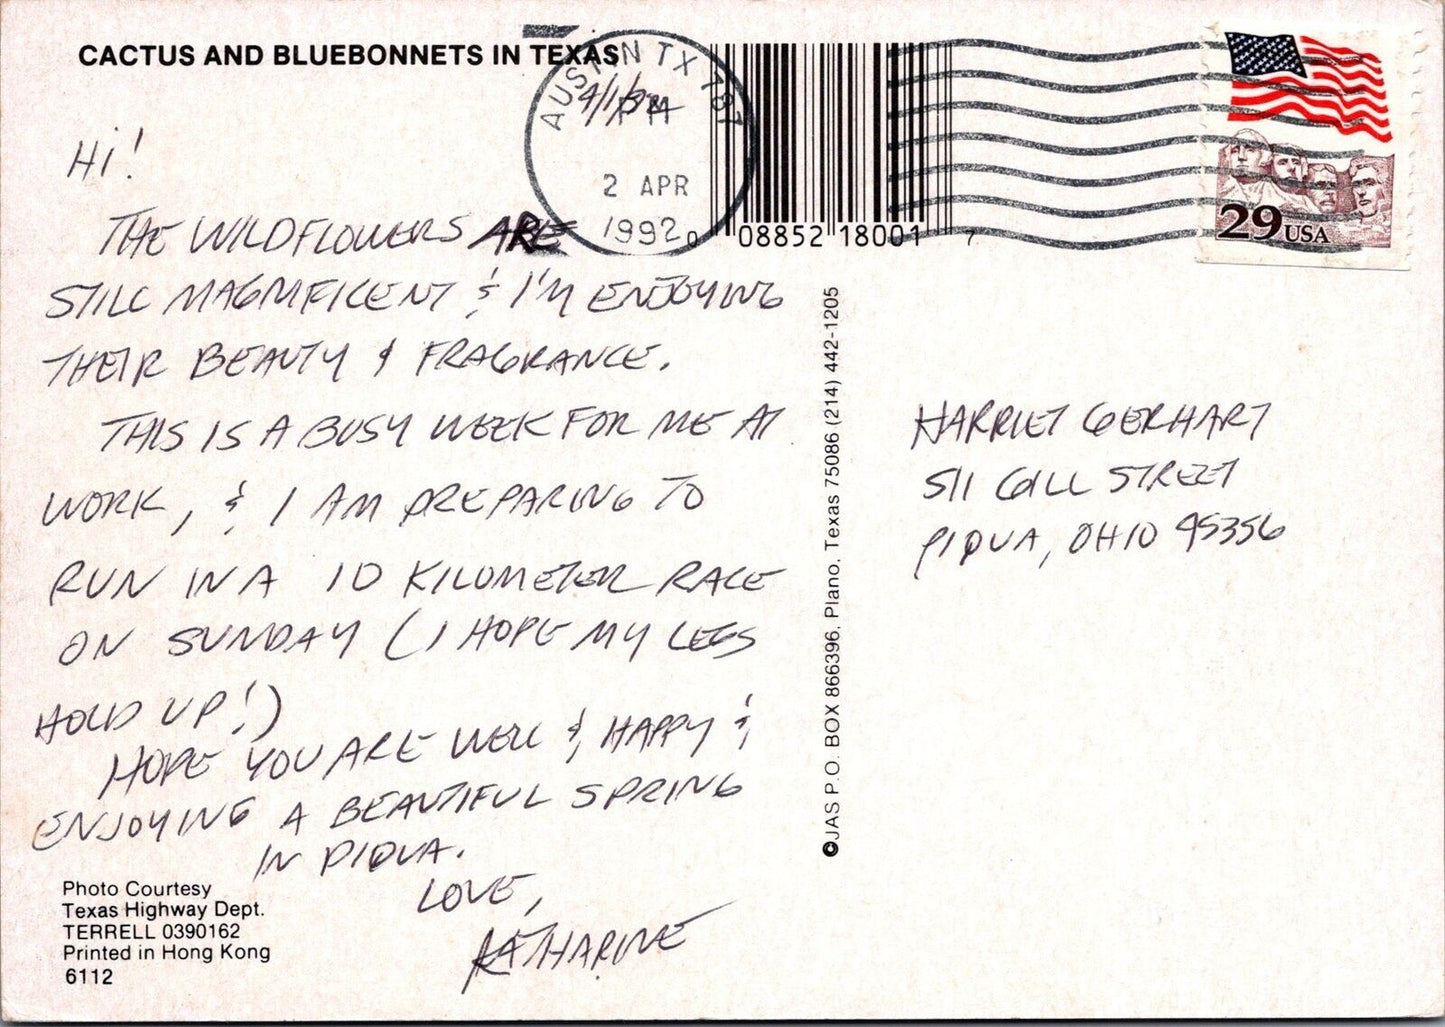 CACTUS AND BLUEBONNETS IN TEXAS
AUSTIN TX 787
PM
2 APR
1992
4/1/92
0 08852 18001 7
29 USA
HI!
THE WILDFLOWERS ARE
STILL MAGNIFICENT & I'M ENJOYING
THEIR BEAUTY & FRAGRANCE.
THIS IS A BUSY WEEK FOR ME AT
WORK, & I AM PREPARING TO
RUN IN A 10 KILOMETER RACE
ON SUNDAY (I HOPE MY LEGS
HOLD UP!)
HOPE YOU ARE WELL & HAPPY &
ENJOYING A BEAUTIFUL SPRING
IN PIQUA.
LOVE,
KATHARINE
Photo Courtesy
Texas Highway Dept.
TERRELL 0390162
Printed in Hong Kong
6112
©JAS P.O. BOX 866396, Plano, Texas 75086 (214) 442-1205
HARRIET GERHART
511 GILL STREET
PIQUA, OHIO 45356